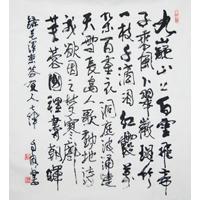 九嶷山上白雲飛帝
子乘風下翠微斑竹
一枝千滴淚紅霞萬
朵百重衣洞庭波涌連
天雪長島人歌動地詩
我欲因之夢寥廓
芙蓉國裡盡朝暉
錄毛澤東答友人七律